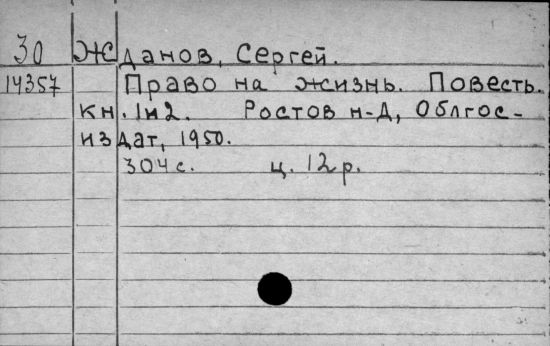 30 Жданов, Сергей.
14357 Право на жизнь. Повесть.
кн. 1и2. Ростов н-Д, Облгос-
издат, 1950.
304с. ц. 12р.